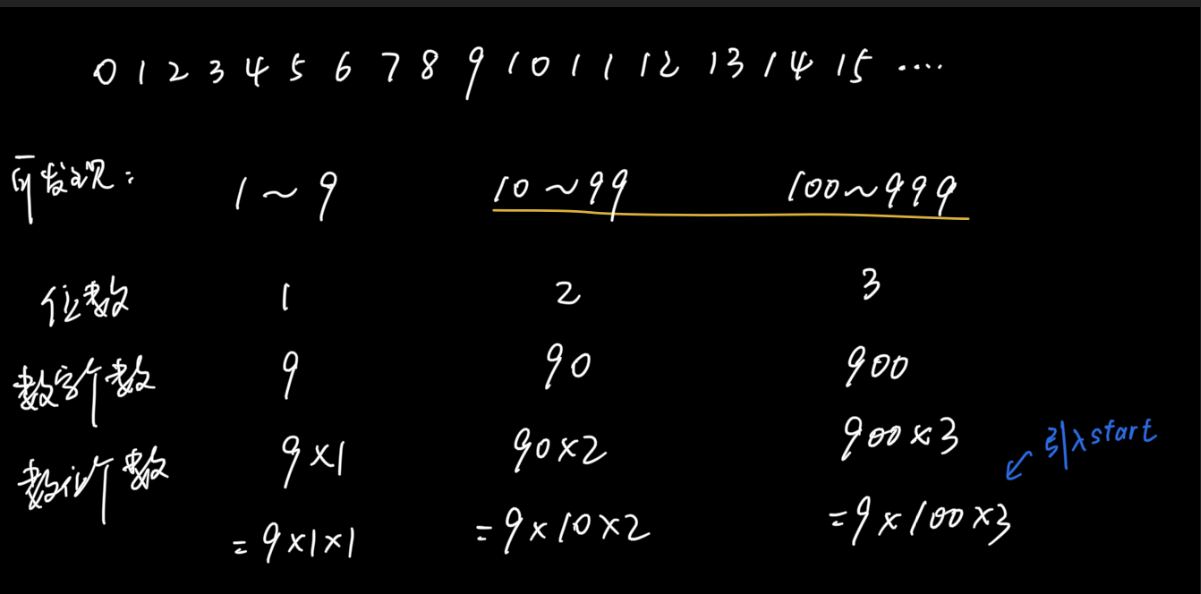 0 1 2 3 4 5 6 7 8 9 10 11 12 13 14 15 ....
可发现: 1~9 10~99 100~999
位数 1 2 3
数字个数 9 90 900
数位个数 9×1 90×2 900×3 引入start
=9×1×1 =9×10×2 =9×100×3